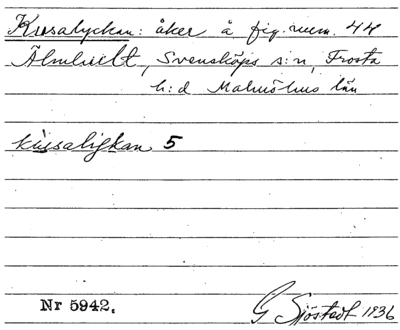 Kusalyckan: åker å fig. num. 44
Älmhult, Svensköps s:n, Frosta
h:d Malmöhus län
kusalykan 5
Nr 5942.
G Sjöstedt 1936